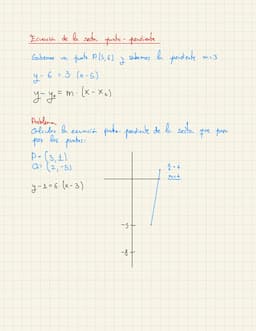 Ecuación de la recta punto-pendiente
Sabemos un punto P(5,6) y sabemos la pendiente m=3
y-6=3·(x-5)
y-y₁=m·(x-x₁)
Problema
Calcular la ecuación punto-pendiente de la recta que pasa
por los puntos:
P=(3,1)
Q=(2,-5)
y-1=6·(x-3)
-5
-8